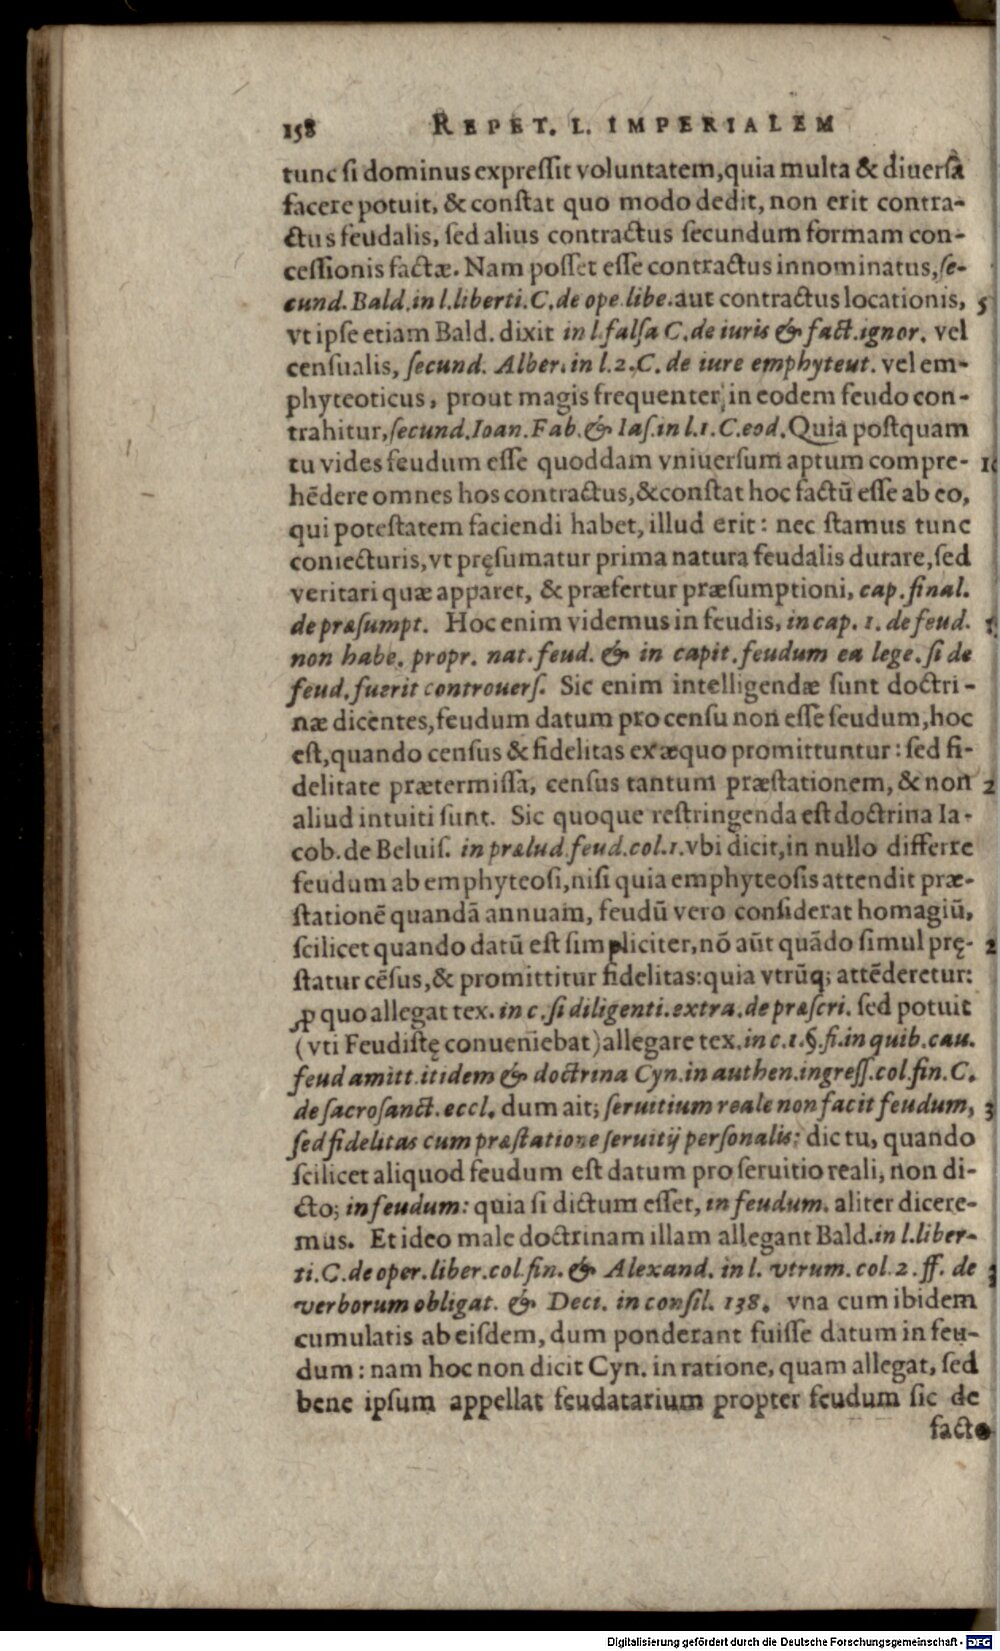 158 REPET. L. IMPERIALEM
tunc ſi dominus expreſſit voluntatem,quia multa & diuerſa
facere potuit, & conſtat quo modo dedit, non erit contra-
ctus feudalis, ſed alius contractus ſecundum formam con-
ceſſionis factæ. Nam poſſet eſſe contractus innominatus,ſe-
cund.Bald.in l.liberti.C.de ope.libe.aut contractus locationis, 5
vt ipſe etiam Bald. dixit in l.falſa C.de iuris & fact.ignor. vel
cenſualis, ſecund. Alber.in l.2.C. de iure emphyteut. vel em-
phyteoticus, prout magis frequenter, in eodem feudo con-
trahitur,ſecund.Ioan.Fab.& Iaſ.in l.1.C.eod.Quia poſtquam
tu vides feudum eſſe quoddam vniuerſum aptum compre- 1
hēdere omnes hos contractus,&conſtat hoc factū eſſe ab eo,
qui poteſtatem faciendi habet, illud erit: nec ſtamus tunc
coniecturis,vt pręſumatur prima natura feudalis durare,ſed
veritati quæ apparet, & præfertur præſumptioni, cap.final.
de præſumpt. Hoc enim videmus in feudis, in cap. 1. de feud. 1
non habe. propr. nat.feud. & in capit.feudum ea lege.ſi de
feud.fuerit controuerſ. Sic enim intelligendæ ſunt doctri-
næ dicentes,feudum datum pro cenſu non eſſe feudum,hoc
eſt,quando cenſus & fidelitas ex æquo promittuntur: ſed fi-
delitate prætermiſſa, cenſus tantum præſtationem, & non 2
aliud intuiti ſunt. Sic quoque reſtringenda eſt doctrina Ia-
cob.de Beluiſ. in prælud.feud.col.1.vbi dicit,in nullo differre
feudum ab emphyteoſi,niſi quia emphyteoſis attendit præ-
ſtationē quandā annuam, feudū vero conſiderat homagiū,
ſcilicet quando datū eſt ſimpliciter,nō aūt quādo ſimul prę- 2
ſtatur cēſus,& promittitur fidelitas:quia vtrūq; attēderetur:
ꝓ quo allegat tex. in c.ſi diligenti.extra.de præſcri. ſed potuit
(vti Feudiſtę conueniebat)allegare tex.in c.1.§.fi.in quib.cau.
feud amitt.itidem & doctrina Cyn.in authen.ingreſſ.col.fin.C.
de ſacroſanct.eccl. dum ait; ſeruitium reale non facit feudum, 3
ſed fidelitas cum præſtatione ſeruitij perſonalis: dic tu, quando
ſcilicet aliquod feudum eſt datum pro ſeruitio reali, non di-
cto; in feudum: quia ſi dictum eſſet, in feudum. aliter dicere-
mus. Et ideo male doctrinam illam allegant Bald.in l.liber-
ti.C.de oper.liber.col.fin. & Alexand. in l. vtrum. col.2. ff. de 3
verborum obligat. & Deci. in conſil. 138. vna cum ibidem
cumulatis ab eiſdem, dum ponderant fuiſſe datum in feu-
dum: nam hoc non dicit Cyn. in ratione, quam allegat, ſed
bene ipſum appellat feudatarium propter feudum ſic de
facto
Digitalisierung gefördert durch die Deutsche Forschungsgemeinschaft - DFG